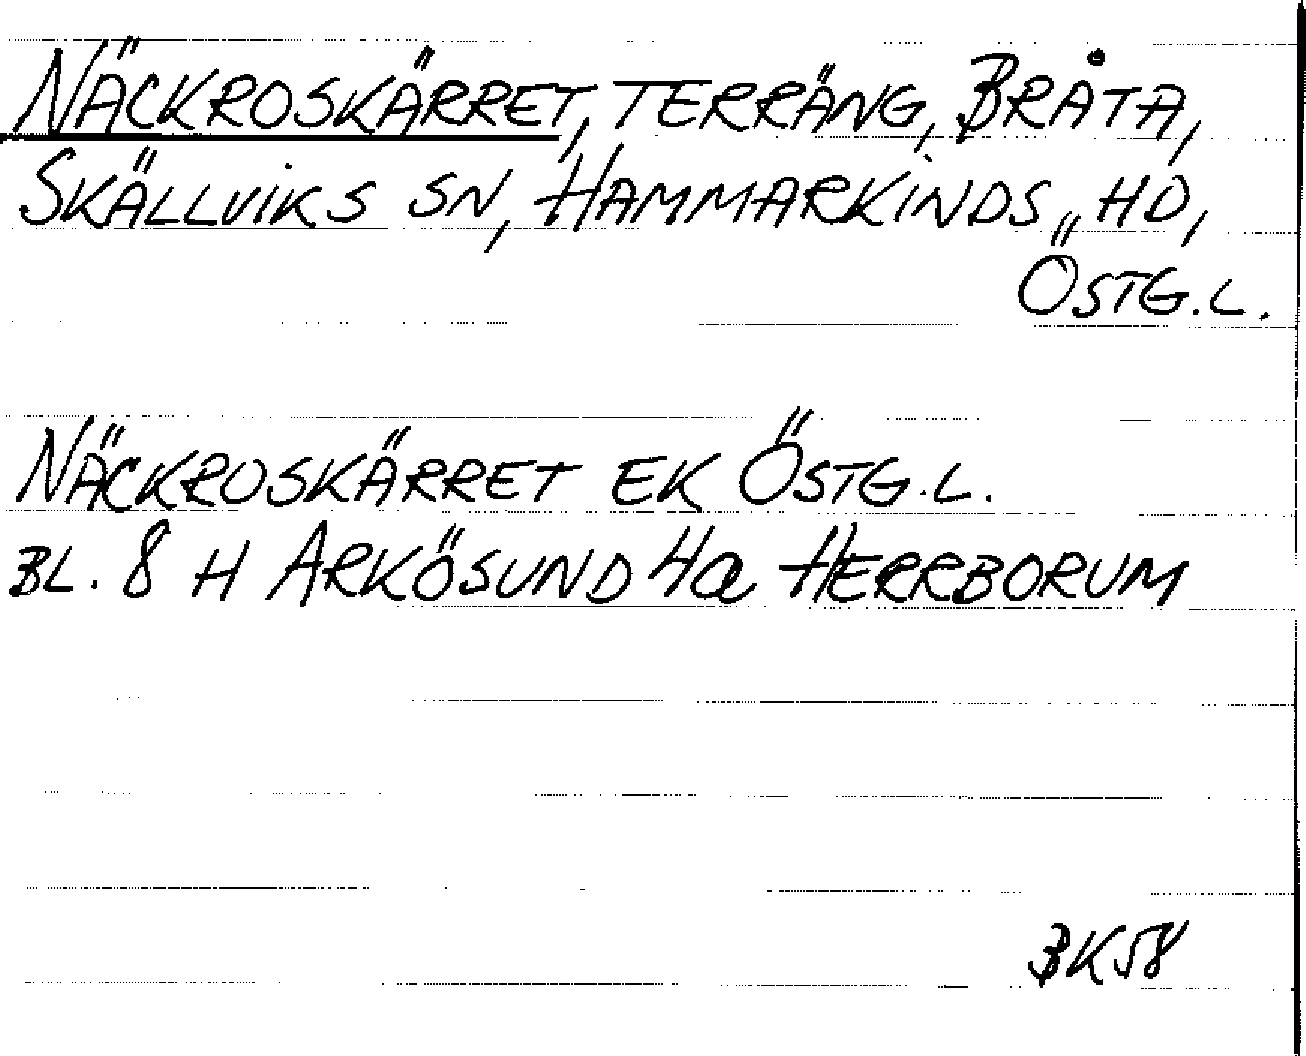 NÄCKROSKÄRRET, TERRÄNG, BRÅTA,
SKÄLLVIKS SN, HAMMARKINDS HD,
ÖSTG.L.
NÄCKROSKÄRRET EK ÖSTG.L.
BL. 8 H ARKÖSUND 4a HERRBORUM
BK58